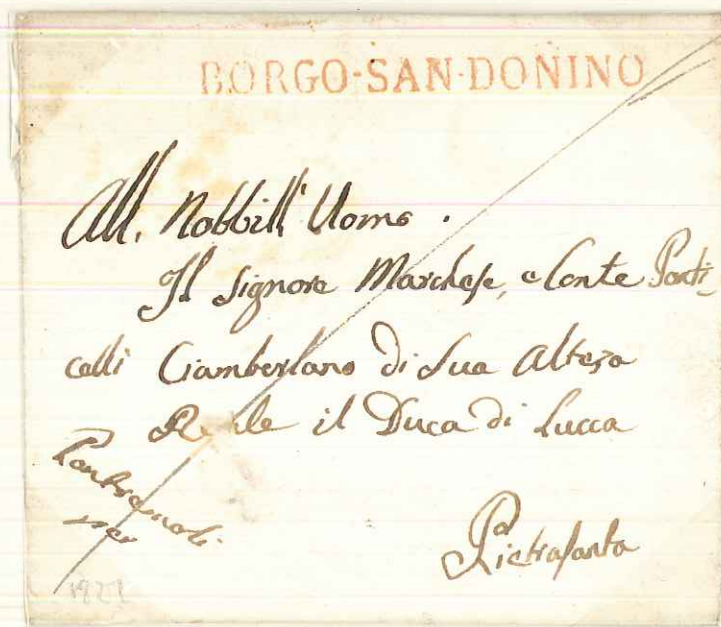 BORGO-SAN-DONINO
All. Nobbill' Uomo.
Il Signore Marchese, e Conte Parti-
celli Ciamberlano di Sua Alteza
Reale il Duca di Lucca
Pontremoli
per
Pietrasanta